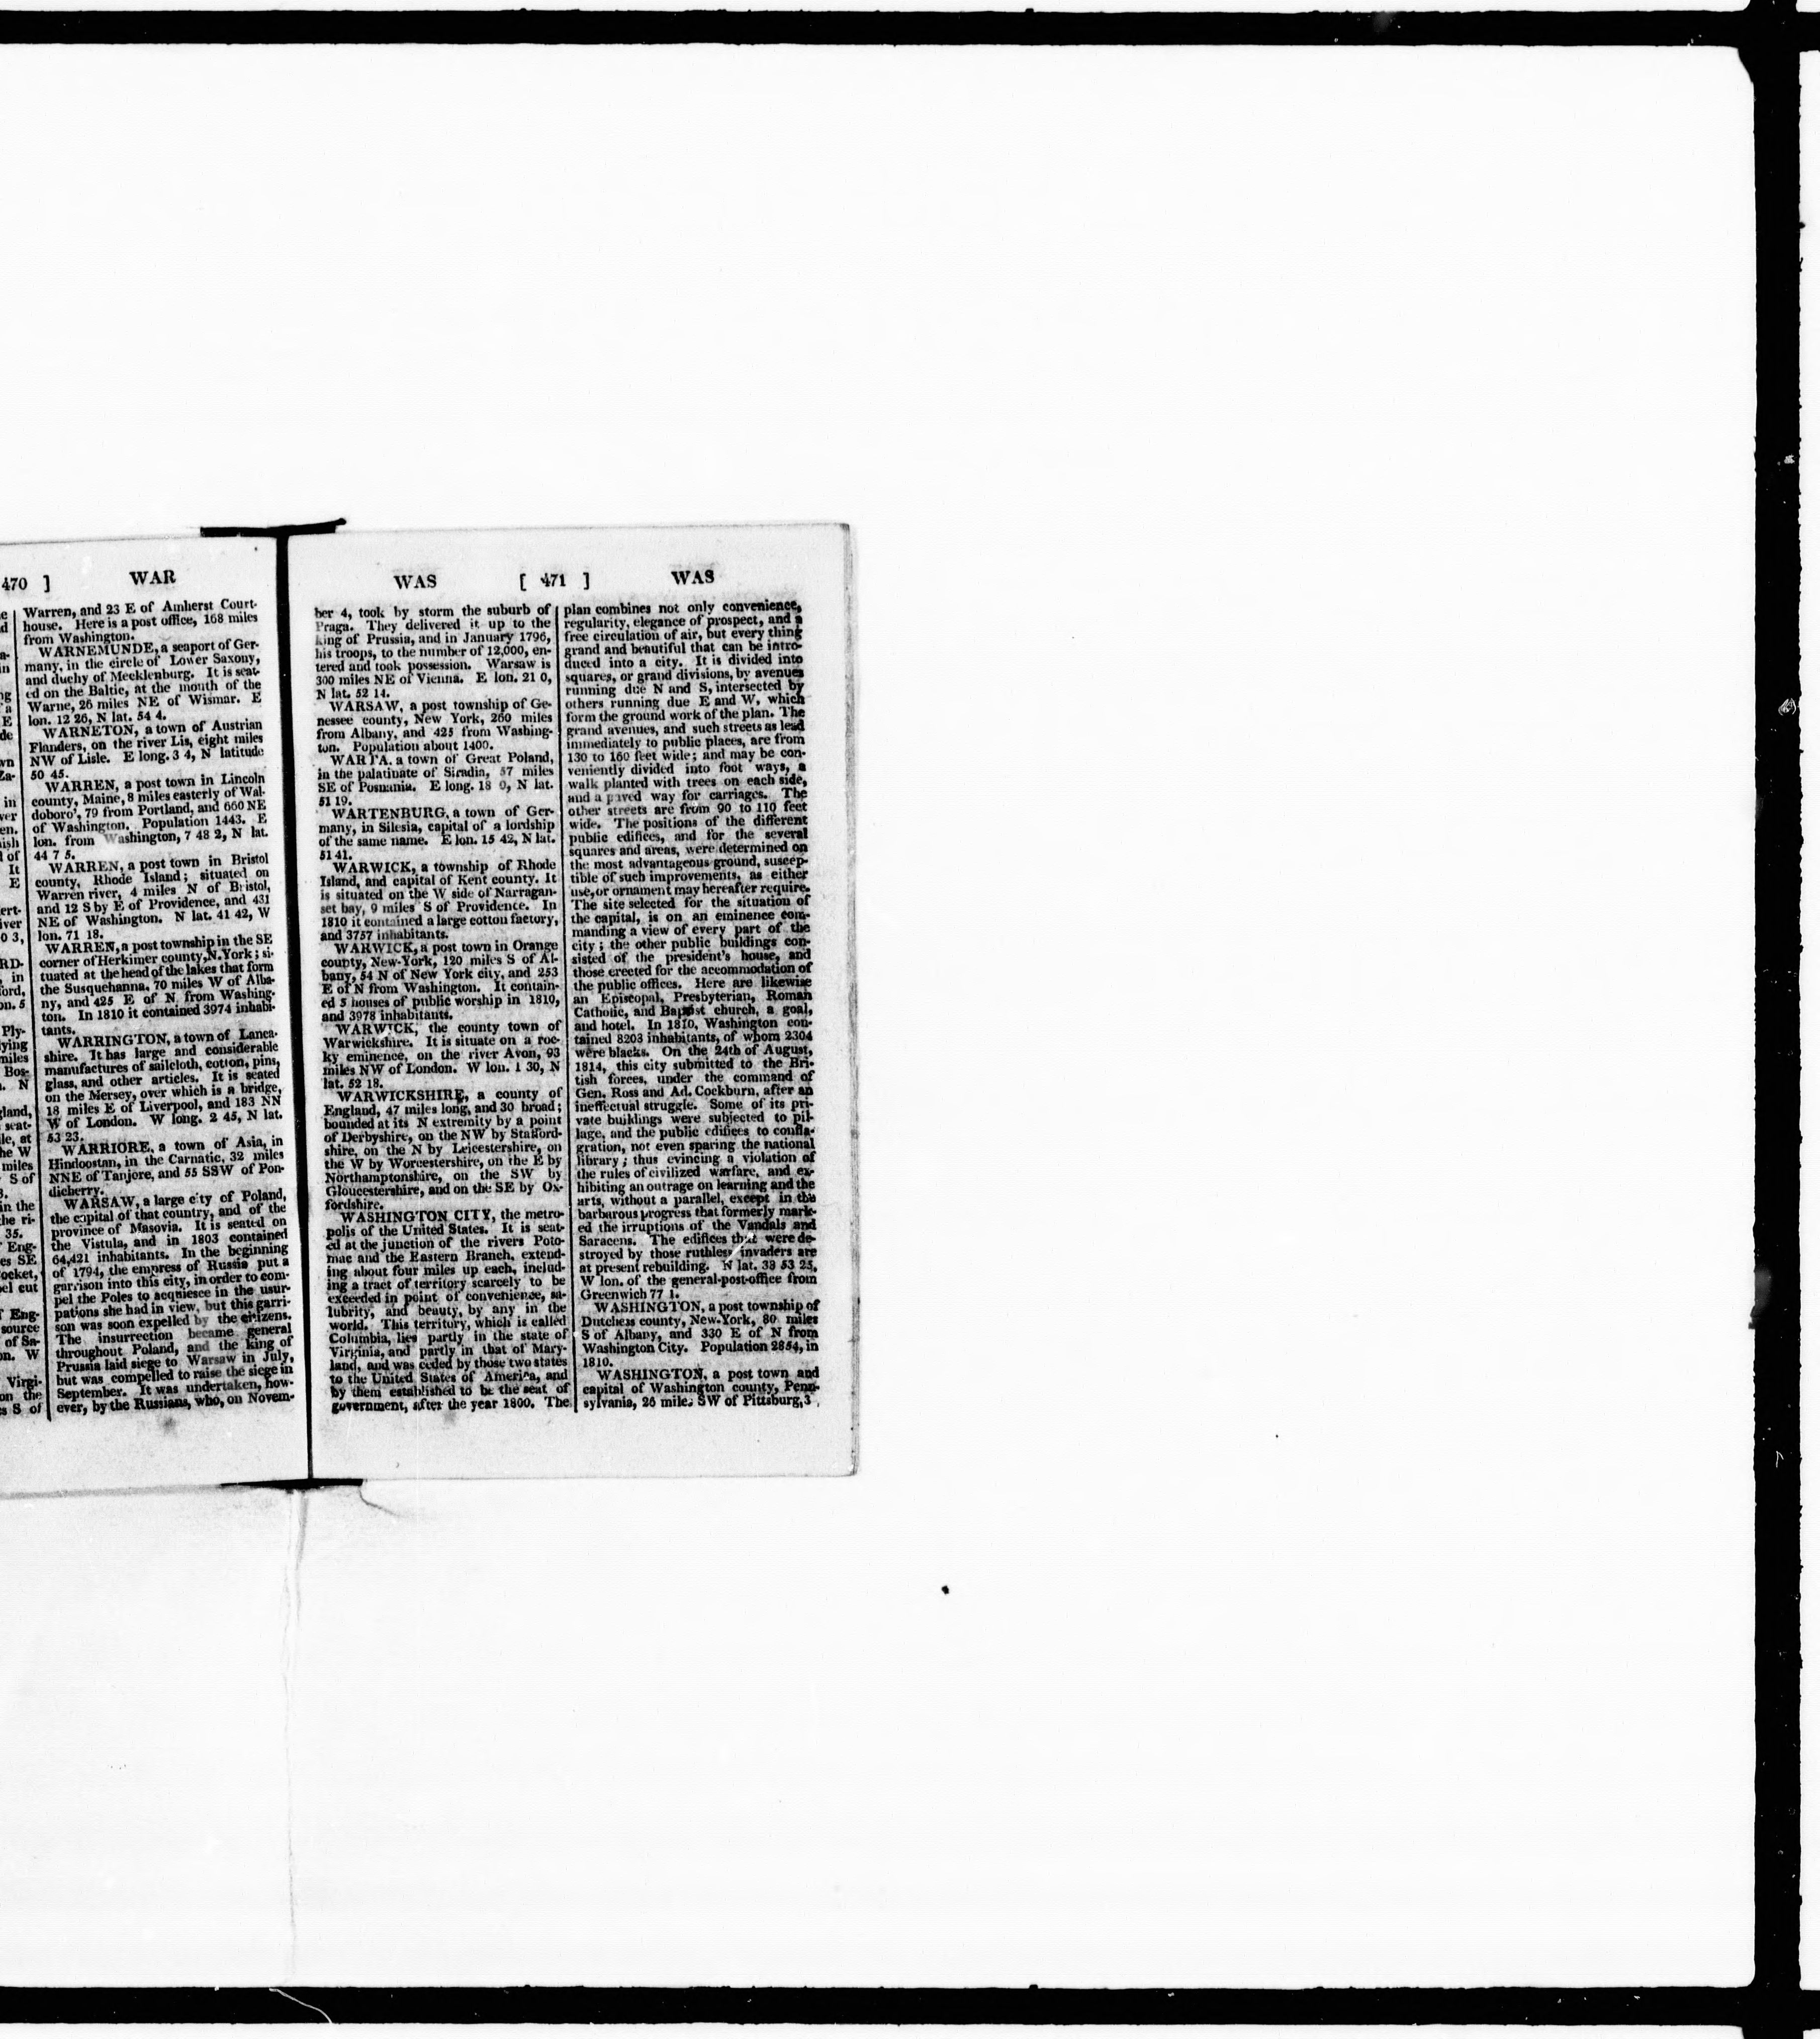 470 ]
WAR
Warren, and 23 E of Amherst Court-
house. Here is a post office, 168 miles
from Washington.
WARNEMUNDE, a seaport of Ger-
many, in the circle of Lower Saxony,
and duchy of Mecklenburg. It is seat-
ed on the Baltic, at the mouth of the
Warne, 26 miles NE of Wismar. E
lon. 12 26, N lat. 54 4.
WARNETON, a town of Austrian
Flanders, on the river Lis, eight miles
NW of Lisle. E long. 3 4, N latitude
50 45.
WARREN, a post town in Lincoln
county, Maine, 8 miles easterly of Wal-
doboro', 79 from Portland, and 660 NE
of Washington. Population 1443. E
lon. from Washington, 7 48 2, N lat.
44 7 5.
WARREN, a post town in Bristol
county, Rhode Island; situated on
Warren river, 4 miles N of Bristol,
and 12 S by E of Providence, and 431
NE of Washington. N lat. 41 42, W
lon. 71 18.
WARREN, a post township in the SE
corner of Herkimer county, N. York; si-
tuated at the head of the lakes that form
the Susquehanna. 70 miles W of Alba-
ny, and 425 E of N from Washing-
ton. In 1810 it contained 3974 inhabi-
tants.
WARRINGTON, a town of Lanca-
shire. It has large and considerable
manufactures of sailcloth, cotton, pins,
glass, and other articles. It is seated
on the Mersey, over which is a bridge,
18 miles E of Liverpool, and 183 NN
W of London. W long. 2 45, N lat.
53 23.
WARRIORE, a town of Asia, in
Hindoostan, in the Carnatic, 32 miles
NNE of Tanjore, and 55 SSW of Pon-
dicherry.
WARSAW, a large city of Poland,
the capital of that country, and of the
province of Masovia. It is seated on
the Vistula, and in 1803 contained
64,421 inhabitants. In the beginning
of 1794, the empress of Russia put a
garrison into this city, in order to com-
pel the Poles to acquiesce in the usur-
pations she had in view, but this garri-
son was soon expelled by the citizens.
The insurrection became general
throughout Poland, and the king of
Prussia laid siege to Warsaw in July,
but was compelled to raise the siege in
September. It was undertaken, how-
ever, by the Russians, who, on Novem-
WAS
[ 471 ]
WAS
ber 4, took by storm the suburb of
Praga. They delivered it up to the
king of Prussia, and in January 1796,
his troops, to the number of 12,000, en-
tered and took possession. Warsaw is
300 miles NE of Vienna. E lon. 21 0,
N lat. 52 14.
WARSAW, a post township of Ge-
nessee county, New York, 260 miles
from Albany, and 425 from Washing-
ton. Population about 1400.
WARTA, a town of Great Poland,
in the palatinate of Siradia, 57 miles
SE of Posnania. E long. 18 0, N lat.
51 19.
WARTENBURG, a town of Ger-
many, in Silesia, capital of a lordship
of the same name. E lon. 15 42, N lat.
51 41.
WARWICK, a township of Rhode
Island, and capital of Kent county. It
is situated on the W side of Narragan-
set bay, 9 miles S of Providence. In
1810 it contained a large cotton factory,
and 3757 inhabitants.
WARWICK, a post town in Orange
county, New-York, 120 miles S of Al-
bany, 54 N of New York city, and 253
E of N from Washington. It contain-
ed 5 houses of public worship in 1810,
and 3978 inhabitants.
WARWICK, the county town of
Warwickshire. It is situate on a roc-
ky eminence, on the river Avon, 93
miles NW of London. W lon. 1 30, N
lat. 52 18.
WARWICKSHIRE, a county of
England, 47 miles long, and 30 broad;
bounded at its N extremity by a point
of Derbyshire, on the NW by Stafford-
shire, on the N by Leicestershire, on
the W by Worcestershire, on the E by
Northamptonshire, on the SW by
Gloucestershire, and on the SE by Ox-
fordshire.
WASHINGTON CITY, the metro-
polis of the United States. It is seat-
ed at the junction of the rivers Poto-
mac and the Eastern Branch, extend-
ing about four miles up each, includ-
ing a tract of territory scarcely to be
exceeded in point of convenience, sa-
lubrity, and beauty, by any in the
world. This territory, which is called
Columbia, lies partly in the state of
Virginia, and partly in that of Mary-
land, and was ceded by those two states
to the United States of America, and
by them established to be the seat of
government, after the year 1800. The
plan combines not only convenience,
regularity, elegance of prospect, and a
free circulation of air, but every thing
grand and beautiful that can be intro-
duced into a city. It is divided into
squares, or grand divisions, by avenues
running due N and S, intersected by
others running due E and W, which
form the ground work of the plan. The
grand avenues, and such streets as lead
immediately to public places, are from
130 to 160 feet wide; and may be con-
veniently divided into foot ways, a
walk planted with trees on each side,
and a paved way for carriages. The
other streets are from 90 to 110 feet
wide. The positions of the different
public edifices, and for the several
squares and areas, were determined on
the most advantageous ground, suscep-
tible of such improvements, as either
use, or ornament may hereafter require.
The site selected for the situation of
the capital, is on an eminence com-
manding a view of every part of the
city; the other public buildings con-
sisted of the president's house, and
those erected for the accommodation of
the public offices. Here are likewise
an Episcopal, Presbyterian, Roman
Catholic, and Baptist church, a goal,
and hotel. In 1810, Washington con-
tained 8203 inhabitants, of whom 2304
were blacks. On the 24th of August,
1814, this city submitted to the Bri-
tish forces, under the command of
Gen. Ross and Ad. Cockburn, after an
ineffectual struggle. Some of its pri-
vate buildings were subjected to pil-
lage, and the public edifices to confla-
gration, not even sparing the national
library; thus evincing a violation of
the rules of civilized warfare, and ex-
hibiting an outrage on learning and the
arts, without a parallel, except in the
barbarous progress that formerly mark-
ed the irruptions of the Vandals and
Saracens. The edifices that were de-
stroyed by those ruthless invaders are
at present rebuilding. N lat. 38 53 25,
W lon. of the general-post-office from
Greenwich 77 1.
WASHINGTON, a post township of
Dutchess county, New-York, 80 miles
S of Albany, and 330 E of N from
Washington City. Population 2854, in
1810.
WASHINGTON, a post town and
capital of Washington county, Penn-
sylvania, 26 miles SW of Pittsburg, 3